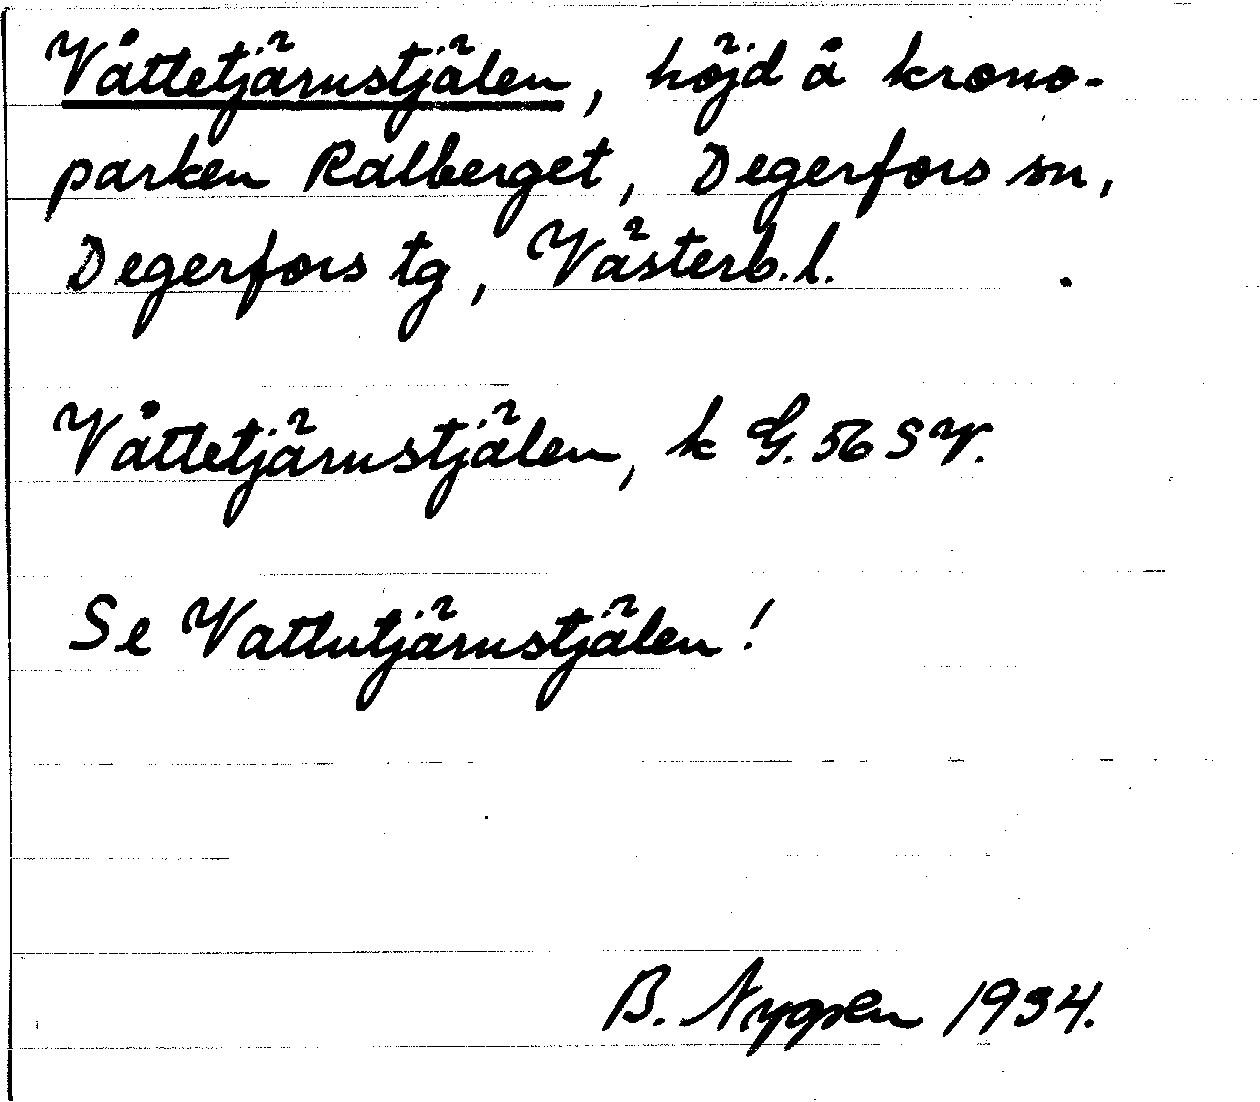 Våttetjärnstjälen, höjd å krono-
parken Ralberget, Degerfors sn,
Degerfors tg, Västerb.l.
Våttetjärnstjälen, k G. 56 SV.
Se Vattutjärnstjälen!
B. Nygren 1934.